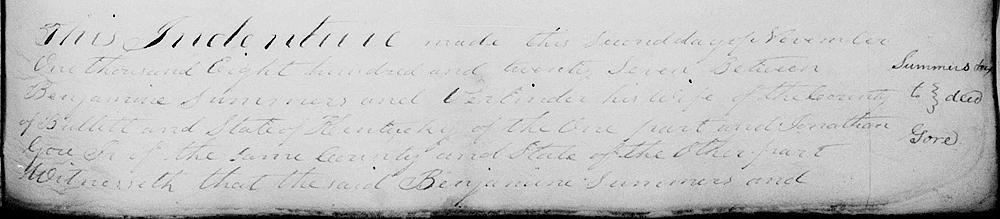 This Indenture made this Second day of November
One thousand Eight hundred and twenty Seven Between
Benjamine Summers and Verlinder his Wife of the County
of Bullett and State of Kentucky of the One part and Jonathan
Gore Sr of the Same County and State of the Other part
Witnesseth that the said Benjamine Summers and
Summers
to } deed
Gore